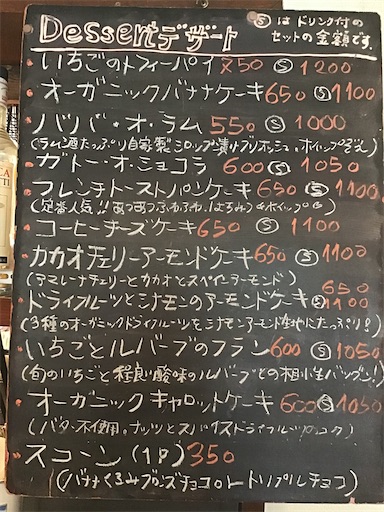 Dessert デザート
Ⓢは ドリンク付の
セットの金額です。
いちごのトフィーパイ 850 Ⓢ 1200
オーガニックバナナケーキ 650 Ⓢ 1100
ババ・オ・ラム 550 Ⓢ 1000
(ラム酒たっぷり自家製シロップ漬けブリオッシュ、ホイップ添え)
ガトー・オ・ショコラ 600 Ⓢ 1050
フレンチトーストパンケーキ 650 Ⓢ 1100
(定番人気!! あつあつふわふわ、はちみつ&ホイップ
コーヒーチーズケーキ 650 Ⓢ 1100
カカオチェリーアーモンドケーキ 650 Ⓢ 1100
(アマレーナチェリーとカカオとスペインアーモンド)
ドライフルーツとシナモンのアーモンドケーキ 650 Ⓢ 1100
(3種のオーガニックドライフルーツをシナモンアーモンド生地にたっぷり!)
いちごとルバーブのフラン 600 Ⓢ 1050
(旬のいちごと程良い酸味のルバーブとの相性バツグン!)
オーガニックキャロットケーキ 600 Ⓢ 1050
(バター不使用。ナッツとスパイスドライフルーツのコク)
スコーン(1P) 350
(バナナくるみブロンズチョコ or トリプルチョコ)